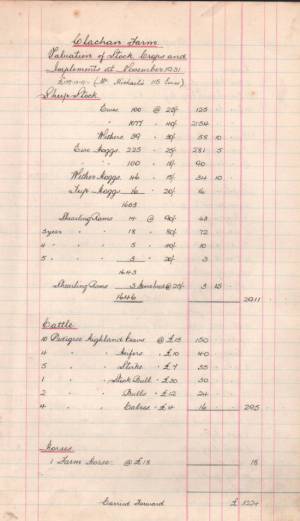 Clachan Farm
Valuation of Stock, Crops and
Implements at November 1931
(Mr Michael's 115 Ewes)
Sheep Stock
Ewes 100 @ 25/- 125
" 1077 " 40/- 2154
Wethers 39 " 30/- 58 10
Ewe Hoggs 225 " 25/- 281 5
" " 100 " 18/- 90
Wether Hoggs 46 " 15/- 34 10
Tup Hoggs 16 20/-
1603
Shearling Rams 14 @ 90/- 63
3 years " " 18 " 80/- 72
4 " " 5 " 40/- 10
5 " " 3 " 20/- 3
1643
Shearling Rams 3 @ 25/- 3 15
1646 2911
Cattle
10 Pedigree Highland Cows @ £15 150
4 " Heifers " £10 40
5 " Stirks " £7 35
1 " Stock Bull " £30 30
2 " Bulls " £12 24
4 " Calves " £4 16 295
Horses
1 Farm Horse @ £18 18
Carried Forward £ 3224